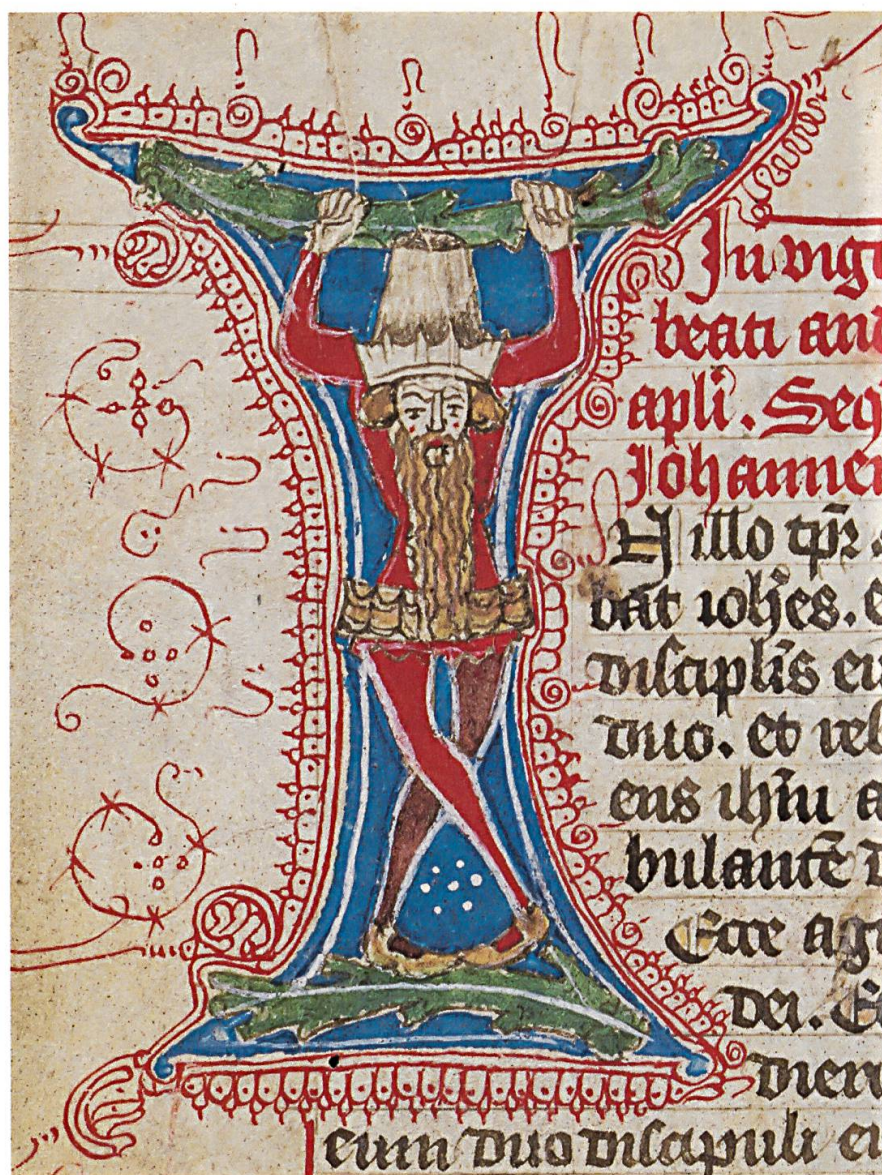 In vigi
beati and
apli. Seq
Iohannem
N illo tp̄r
bat ioh̄es. e
discipl̄is ei
duo. et res
ens ih̄m a
bulantē d
Ecce agn
dei. Et
diere
eum duo discipuli ei